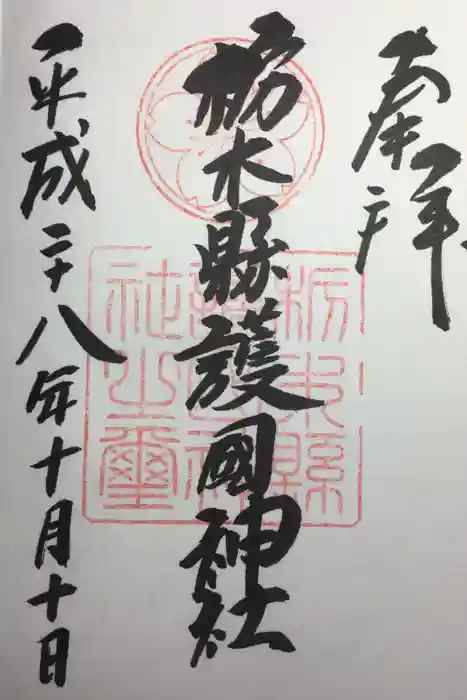 奉拝
栃木縣護國神社
平成二十八年十月十日
栃木縣護國神社之璽